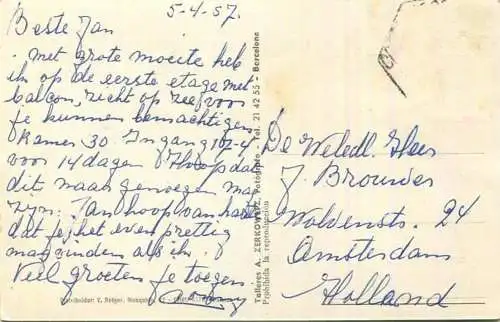 5-4-57.
Beste Jan
. met grote moeite heb
ik op de eerste etage met
balcon, zicht op zee voor
je kunnen bemachtigen
Kamer 30. Ingang 10-4
voor 14 dagen. Hoop dat
dit naar genoegen mag
zijn. Jan hoop van harte
dat jij het even prettig
mag vinden als ik.
Veel groeten je toegen.
Talleres A. ZERKOWITZ, Fotógrafo - Tel. 21 42 55 - Barcelona
Prohibida la reproducción
De Weledl. Heer
J. Brouwer
24
Amsterdam
Holland